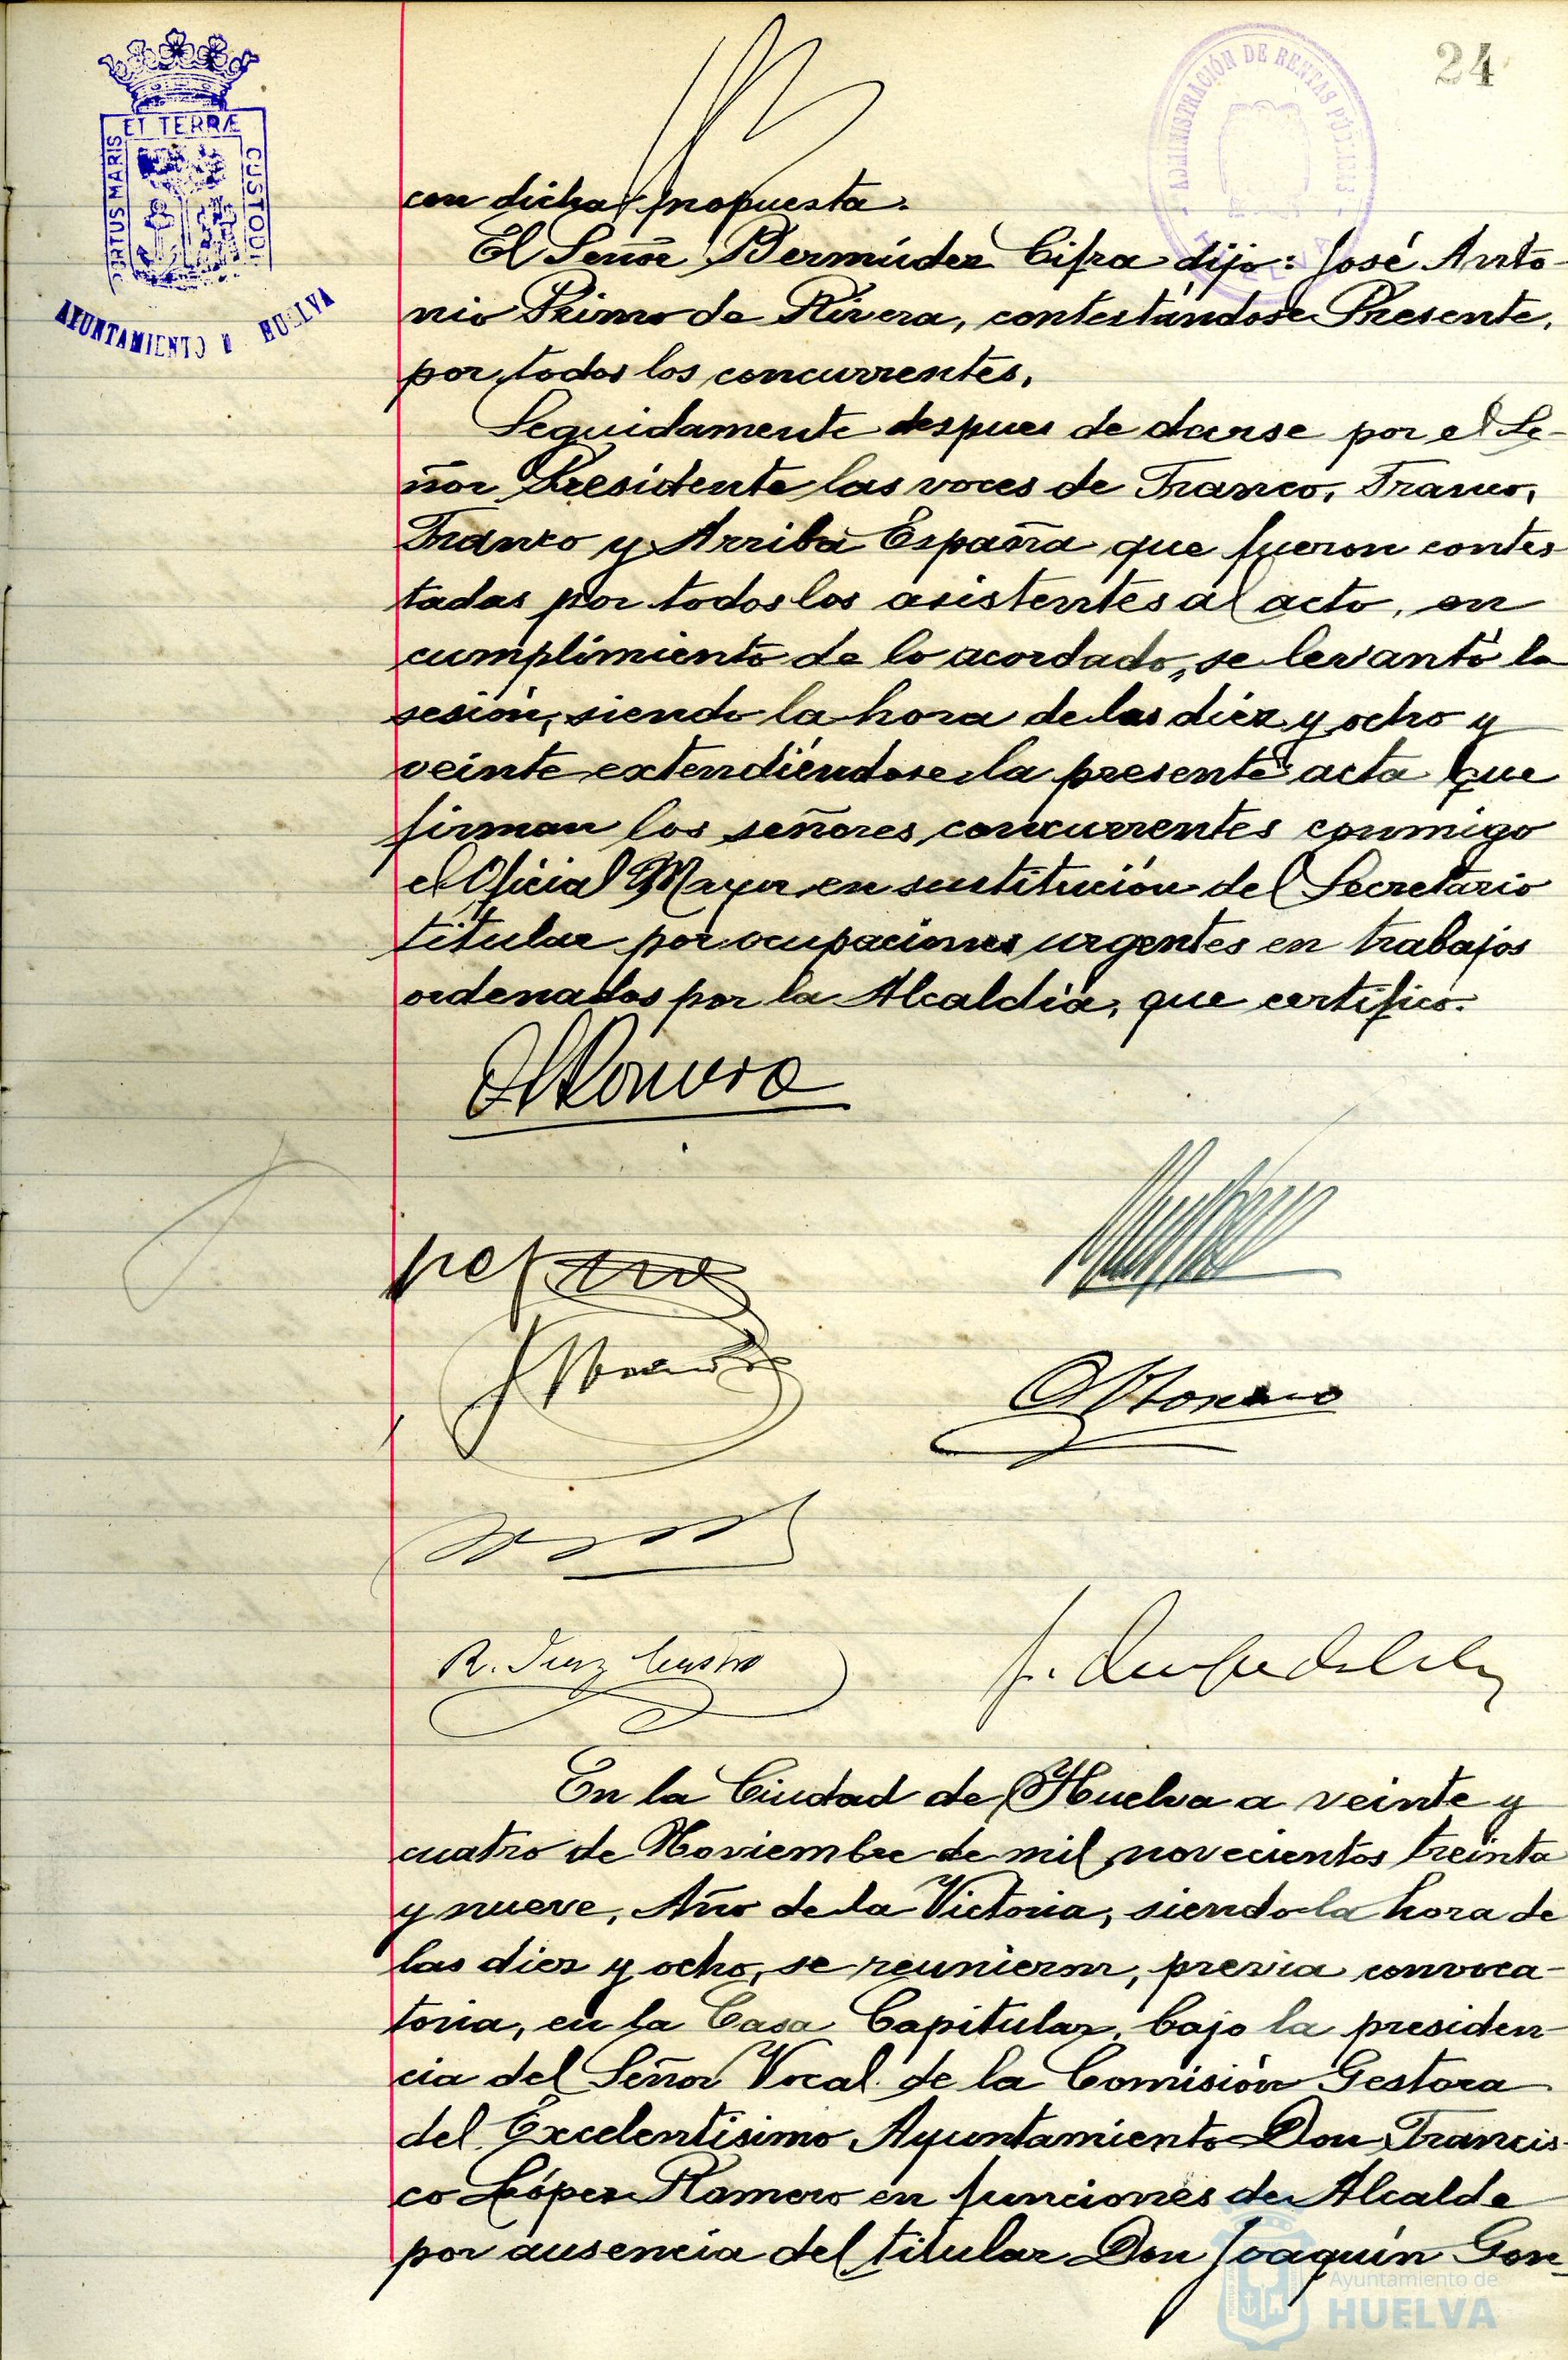 24
ET TERRÆ
PORTUS MARIS
CUSTODI
AYUNTAMIENTO HUELVA
ADMINISTRACIÓN DE RENTAS PÚBLICAS
con dicha propuesta.
El Señor Bermúdez Cifra dijo: José Anto-
nio Primo de Rivera, contestándose Presente,
por todos los concurrentes.
Seguidamente despues de darse por el Se-
ñor Presidente las voces de Franco, Franco,
Franco y Arriba España que fueron contes
tadas por todos los asistentes al acto, en
cumplimiento de lo acordado, se levantó la
sesión, siendo la hora de las diez y ocho y
veinte extendiéndose la presente acta que
firman los señores concurrentes conmigo
el Oficial Mayor en sustitución del Secretario
titular por ocupaciones urgentes en trabajos
ordenados por la Alcaldía, que certifico.
Romero
R. Diaz Castro
En la Ciudad de Huelva a veinte y
cuatro de Noviembre de mil novecientos treinta
y nueve, Año de la Victoria, siendo la hora de
las diez y ocho, se reunieron, previa convoca-
toria, en la Casa Capitular, bajo la presiden-
cia del Señor Vocal de la Comisión Gestora
del Excelentísimo Ayuntamiento Don Francis-
co López Romero en funciones de Alcalde
por ausencia del titular Don Joaquín Gon-
Ayuntamiento de
HUELVA